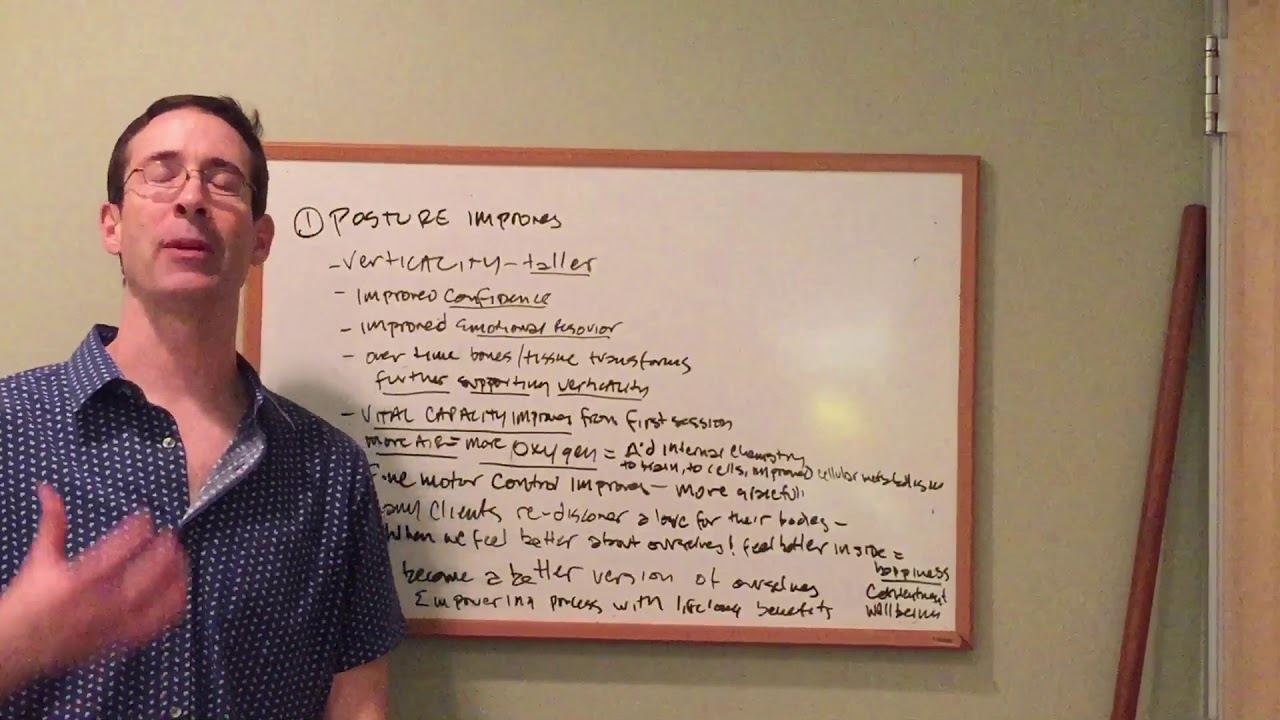 ① POSTURE IMPROVES
- VERTICALITY - taller
- IMPROVED CONFIDENCE
- IMPROVED Emotional Behavior
- over time bones/tissue transforms
further supporting verticality
- VITAL CAPACITY IMPROVES from first session
more AIR = more OXYGEN = Aid internal chemistry
to brain, to cells, improved cellular metabolism
Fine motor control improves - more graceful
clients re-discover a love for their bodies -
When we feel better about ourselves! feel better inside =
happiness
become a better version of ourselves
contentment
Empowering process with lifelong benefits
wellbeing